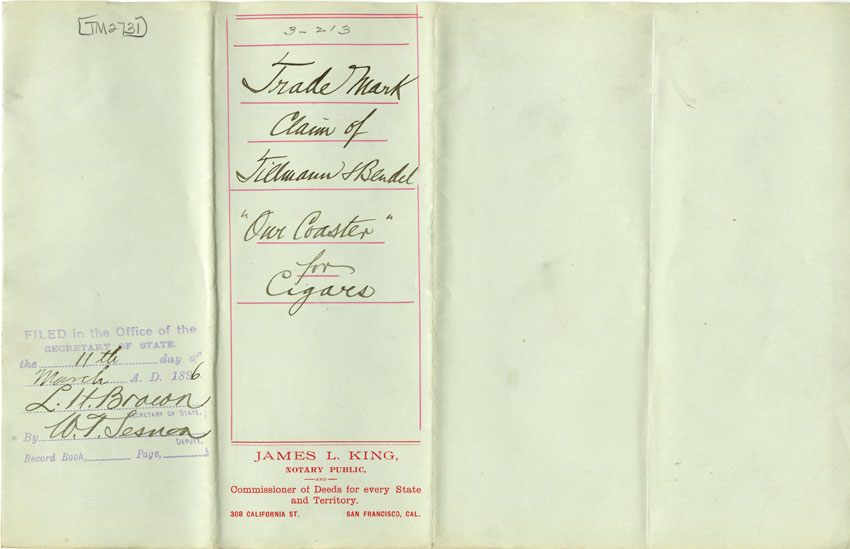 [TM2731]
FILED in the Office of the
SECRETARY OF STATE.
the 11th day of
March A. D. 1896
L. H. Brown
SECRETARY OF STATE.
By W. T. Sesnon
DEPUTY.
Record Book, Page,
3-213
Trade Mark
Claim of
Tillmann & Bendel
"Our Coaster"
for
Cigars
JAMES L. KING,
NOTARY PUBLIC,
AND
Commissioner of Deeds for every State
and Territory.
308 CALIFORNIA ST. SAN FRANCISCO, CAL.